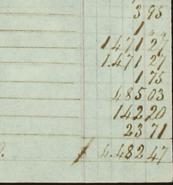 3 95
1 47 1 27
1.47 1 27
1 75
485 03
142 20
23 71
4.482 47